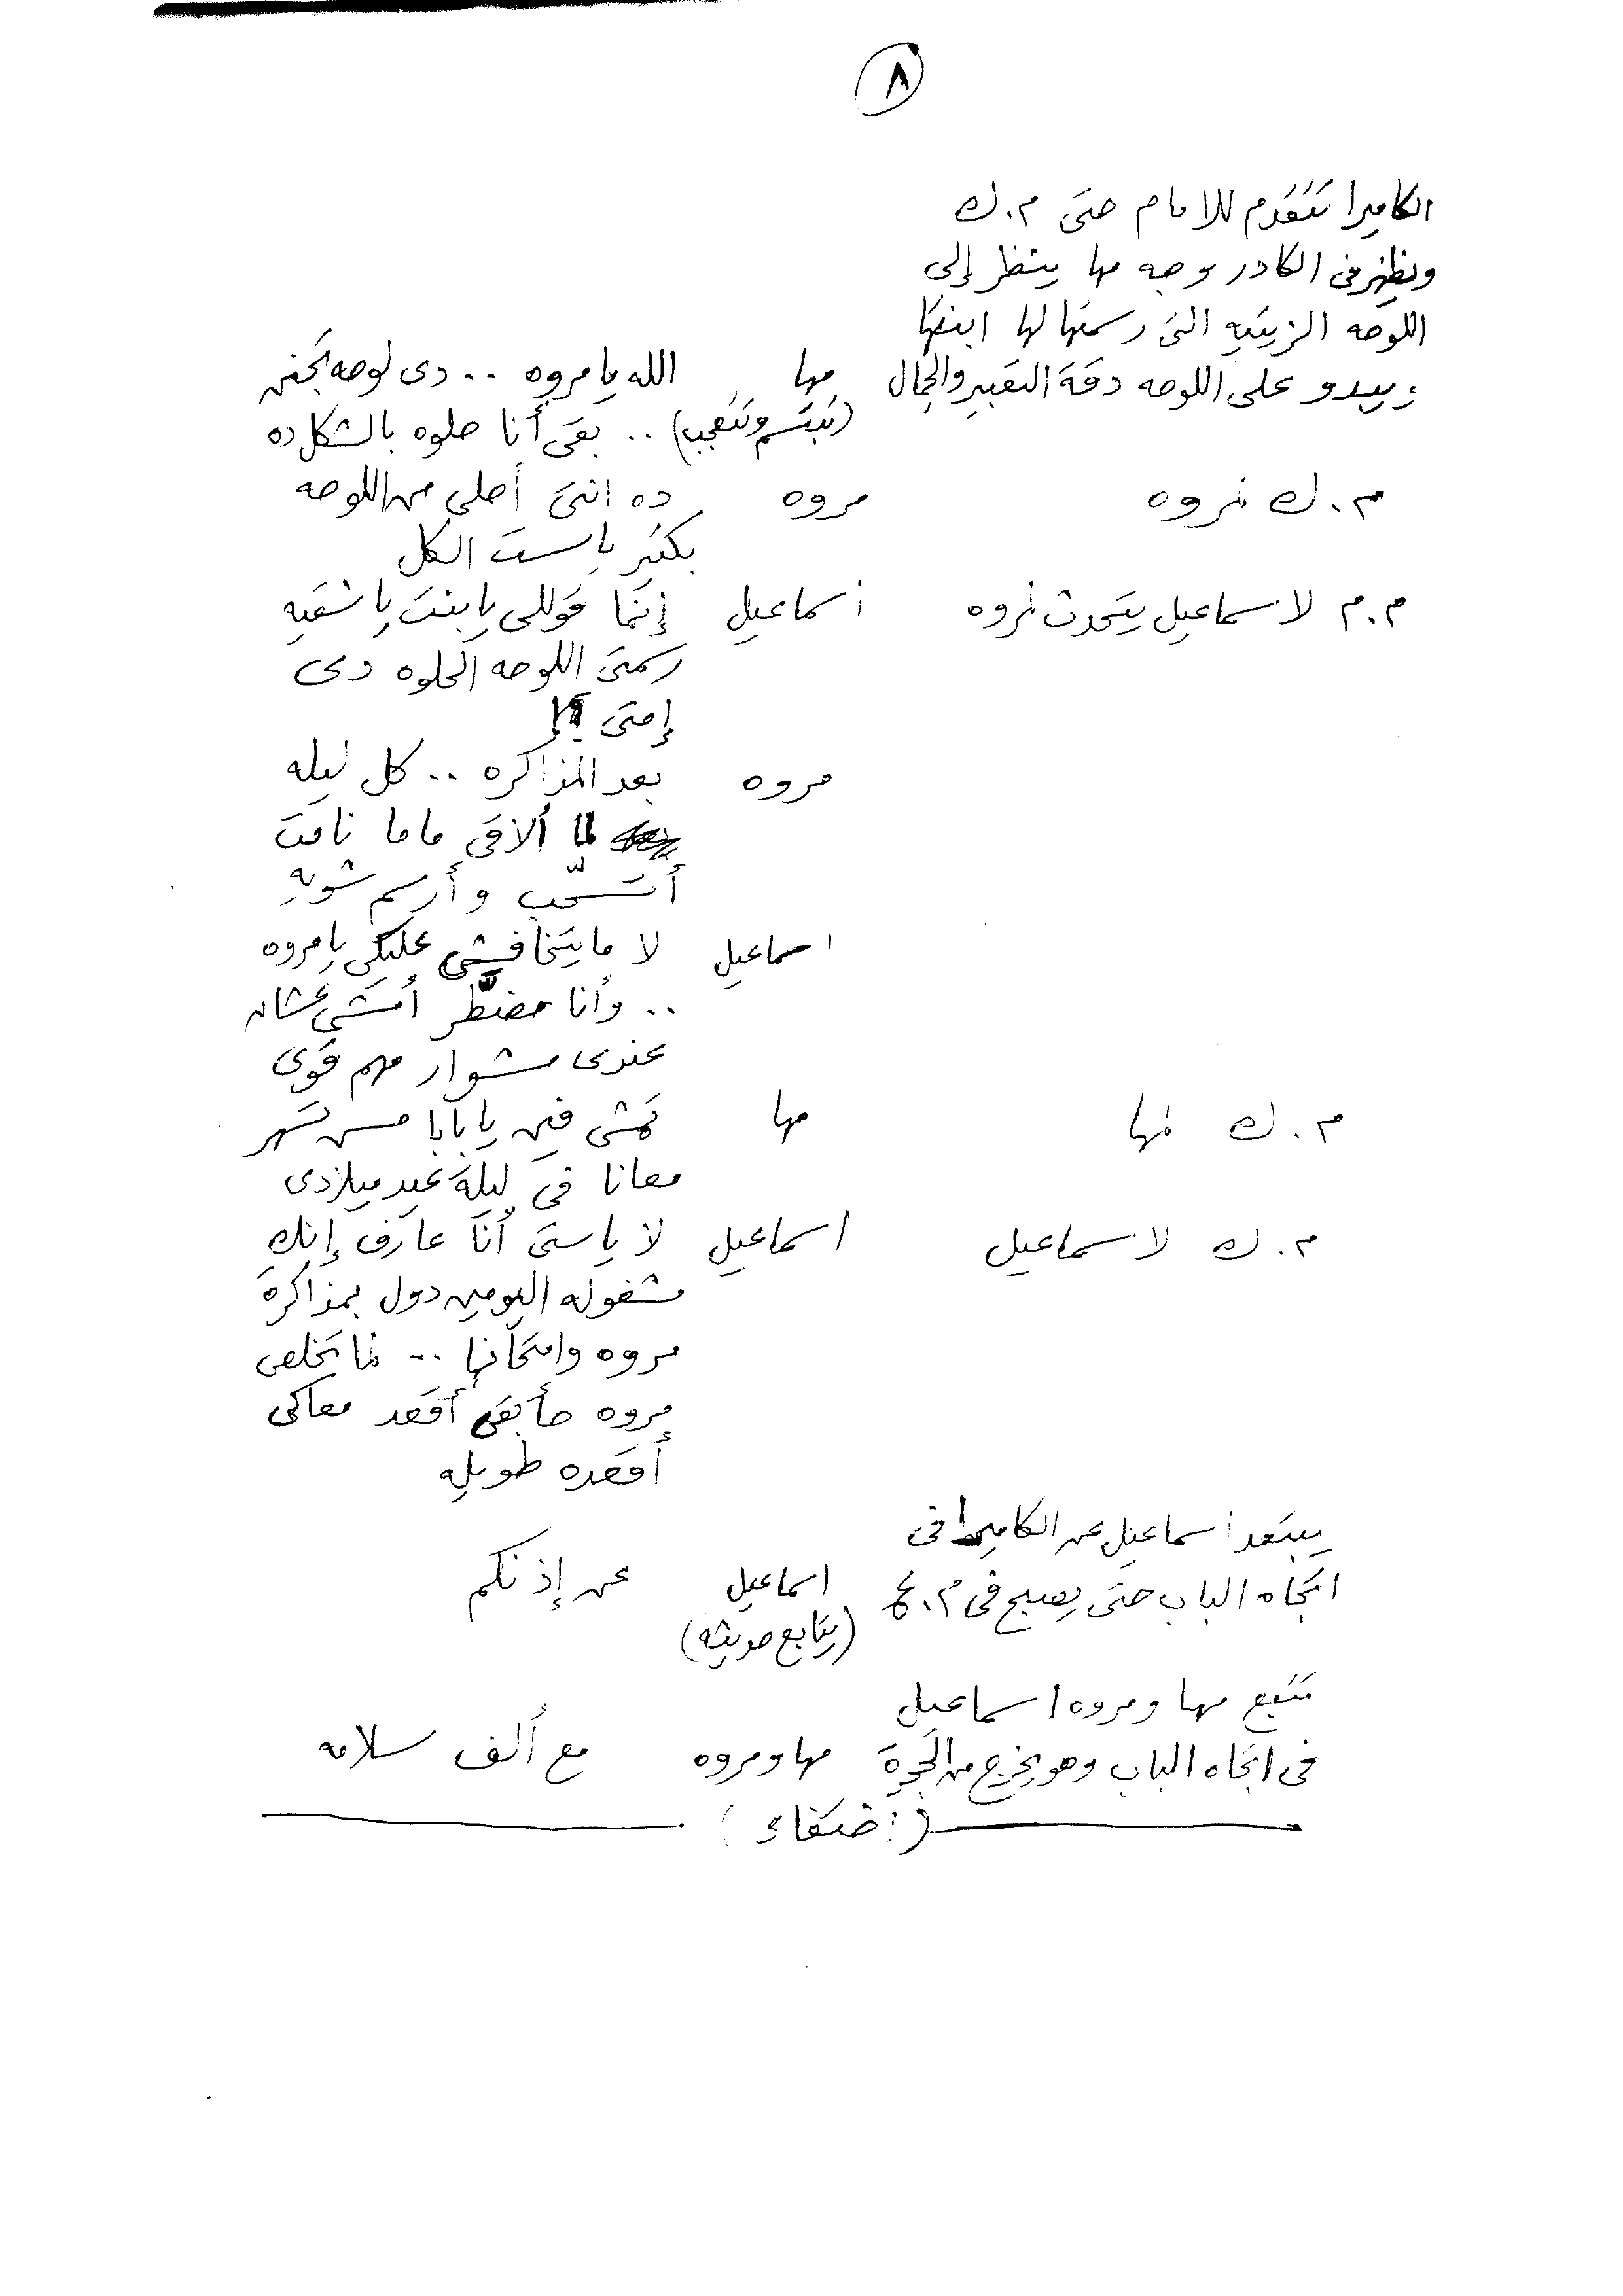 ٨
الكاميرا تتقدم للامام حتى م.ك
ويظهر فى الكادر وجه مها ينظر إلى
اللوحه الزيتيه التى رسمتها لها ابنتها
ويبدو على اللوحه دقة التعبير والجمال
مها الله يا مروه .. دى لوحه تجنن
(تبتسم وتتعجب) .. بقى أنا حلوه بالشكل ده
م.ك لمروه مروه ده انتى أحلى من اللوحه
بكتير يا ست الكل
م.م لاسماعيل يتحدث لمروه اسماعيل إنما قوليلى يا بنت يا شقيه
رسمتى اللوحه الحلوه دى
إمتى ؟!
مروه بعد المذاكره .. كل ليله
لما ألاقى ماما نامت
أتسحّب وأرسم شويه
اسماعيل لا ما يتخافش عليكى يا مروه
.. وأنا مضطّر أمشى عشان
عندى مشوار مهم قوى
م.ك لمها مها تمشى فين يا بابا مش تسهر
معانا فى ليلة عيد ميلادى
م.ك لاسماعيل اسماعيل لا يا ستى أنا عارف إنك
مشغوله اليومين دول بمذاكرة
مروه وامتحانها .. لما تخلص
مروه حأبقى أقعد معاكى
أقعده طويله
يبتعد اسماعيل عن الكاميرا فى
اتجاه الباب حتى يصبح فى م.ع اسماعيل عن إذنكم
(يتابع حديثه)
تتبع مها ومروه اسماعيل
فى اتجاه الباب وهو يخرج من الحجرة مها ومروه مع ألف سلامه
(اختفاء)